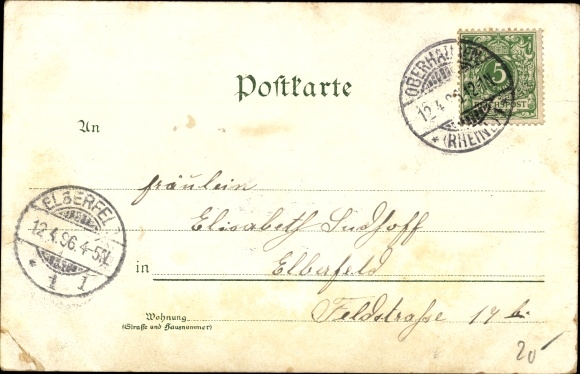 OBERHAUSEN
12.4.96.12-1N
* (RHEINL.)
5
REICHSPOST
Postkarte
An
Fräulein
Elisabeth Sudhoff
ELBERFELD
12.4.96.4-5N.
* 1 I
in Elberfeld
Feldstraße 14 b.
Wohnung
(Straße und Hausnummer)
20